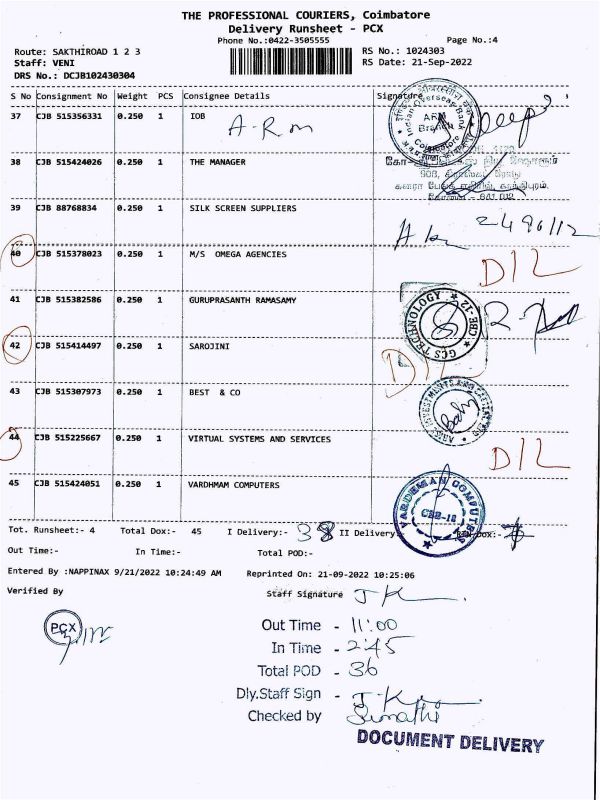 THE PROFESSIONAL COURIERS, Coimbatore
Delivery Runsheet - PCX
Phone No.:0422-3505555 Page No.:4
Route: SAKTHIROAD 1 2 3 RS No.: 1024303
Staff: VENI RS Date: 21-Sep-2022
DRS No.: DCJB102430304
S No Consignment No Weight PCS Consignee Details Signature
37 CJB 515356331 0.250 1 IOB
A-R.M
Indian Overseas Bank
ARM
Branch
Coimbatore
38 CJB 515424026 0.250 1 THE MANAGER
39 CJB 88768834 0.250 1 SILK SCREEN SUPPLIERS
40 CJB 515378023 0.250 1 M/S OMEGA AGENCIES
D/L
41 CJB 515382586 0.250 1 GURUPRASANTH RAMASAMY
GCS TECHNOLOGY ★ CBE-12 ★
42 CJB 515414497 0.250 1 SAROJINI
D/L
43 CJB 515307973 0.250 1 BEST & CO
44 CJB 515225667 0.250 1 VIRTUAL SYSTEMS AND SERVICES
D/L
45 CJB 515424051 0.250 1 VARDHMAM COMPUTERS
VARDEMAN COMPUTERS
CBE-18
Tot. Runsheet:- 4 Total Dox:- 45 I Delivery:- 38 II Delivery Dox:-
Out Time:- In Time:- Total POD:-
Entered By :NAPPINAX 9/21/2022 10:24:49 AM Reprinted On: 21-09-2022 10:25:06
Verified By Staff Signature J K
PCX
Out Time - 11:00
In Time - 2:45
Total POD - 36
Dly.Staff Sign - J.K
Checked by Sumathi
DOCUMENT DELIVERY